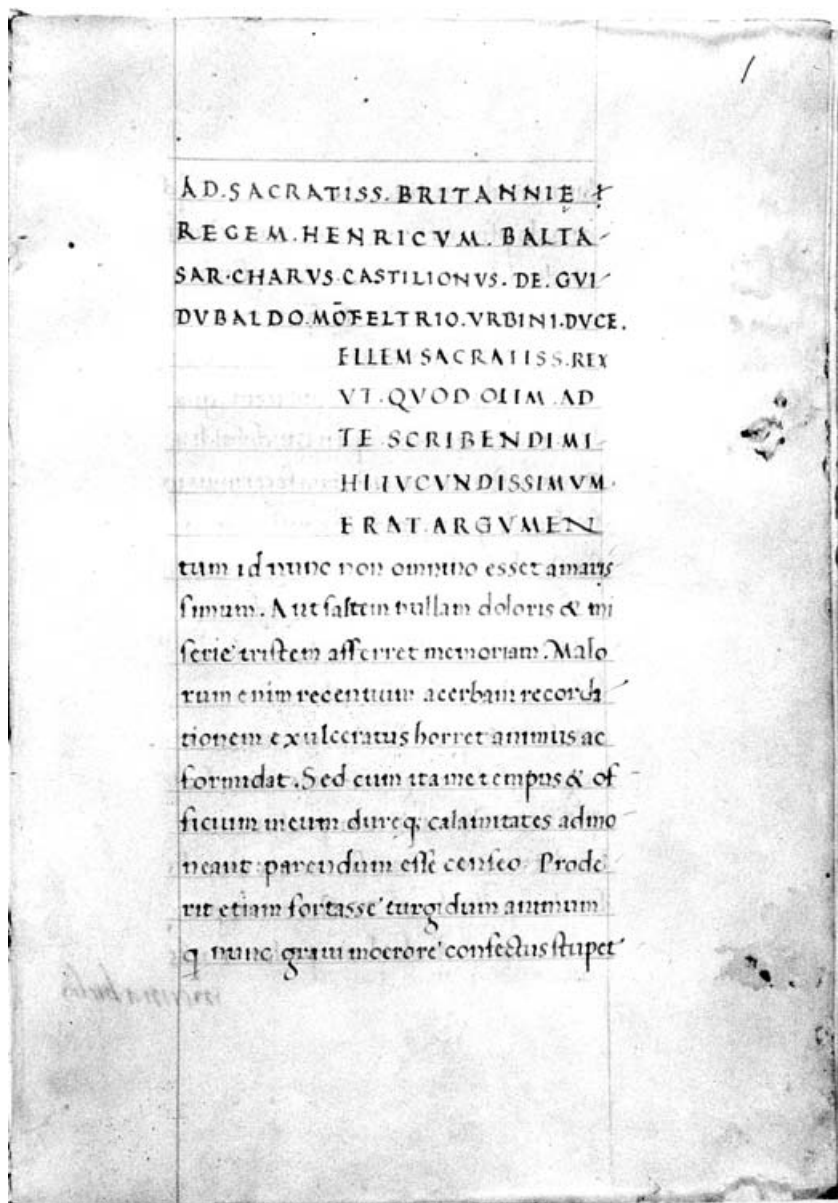 1
AD. SACRATISS. BRITANNIE
REGEM. HENRICVM. BALTA
SAR. CHARVS. CASTILIONVS. DE. GVI
DVBALDO. MŌFELTRIO. VRBINI. DVCE.
ELLEM SACRATISS. REX
VT. QVOD OLIM. AD
TE SCRIBENDI MI
HI IVCVNDISSIMVM.
ERAT. ARGVMEN
tum id nunc non omnino esset amaris
simum. Aut saltem nullam doloris & mi
serie tristem afferret memoriam. Malo
rum enim recentium acerbam recorda
tionem exulceratus horret animus ac
formidat. Sed cum ita me tempus & of
ficium meum dureq; calamitates admo
neant parendum esse censeo. Prode
rit etiam fortasse turgidum animum
q nunc graui moerore confectus stupet